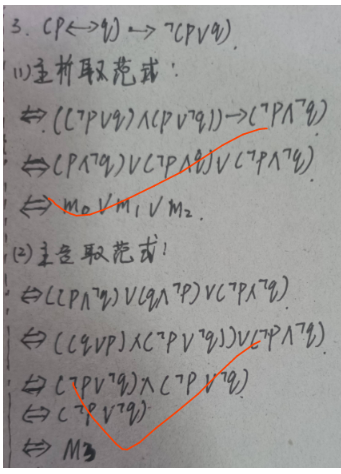 3. (P↔q)→¬(P∨q).
(1)主析取范式:
⇔((¬P∨q)∧(P∨¬q))→(¬P∧¬q)
⇔(P∧¬q)∨(¬P∧q)∨(¬P∧¬q)
⇔m₀∨m₁∨m₂.
(2)主合取范式:
⇔((P∧¬q)∨(q∧¬P)∨(¬P∧¬q)
⇔((q∨P)∧(¬P∨¬q))∨(¬P∧¬q)
⇔(¬P∨¬q)∧(¬P∨¬q)
⇔(¬P∨¬q)
⇔M3